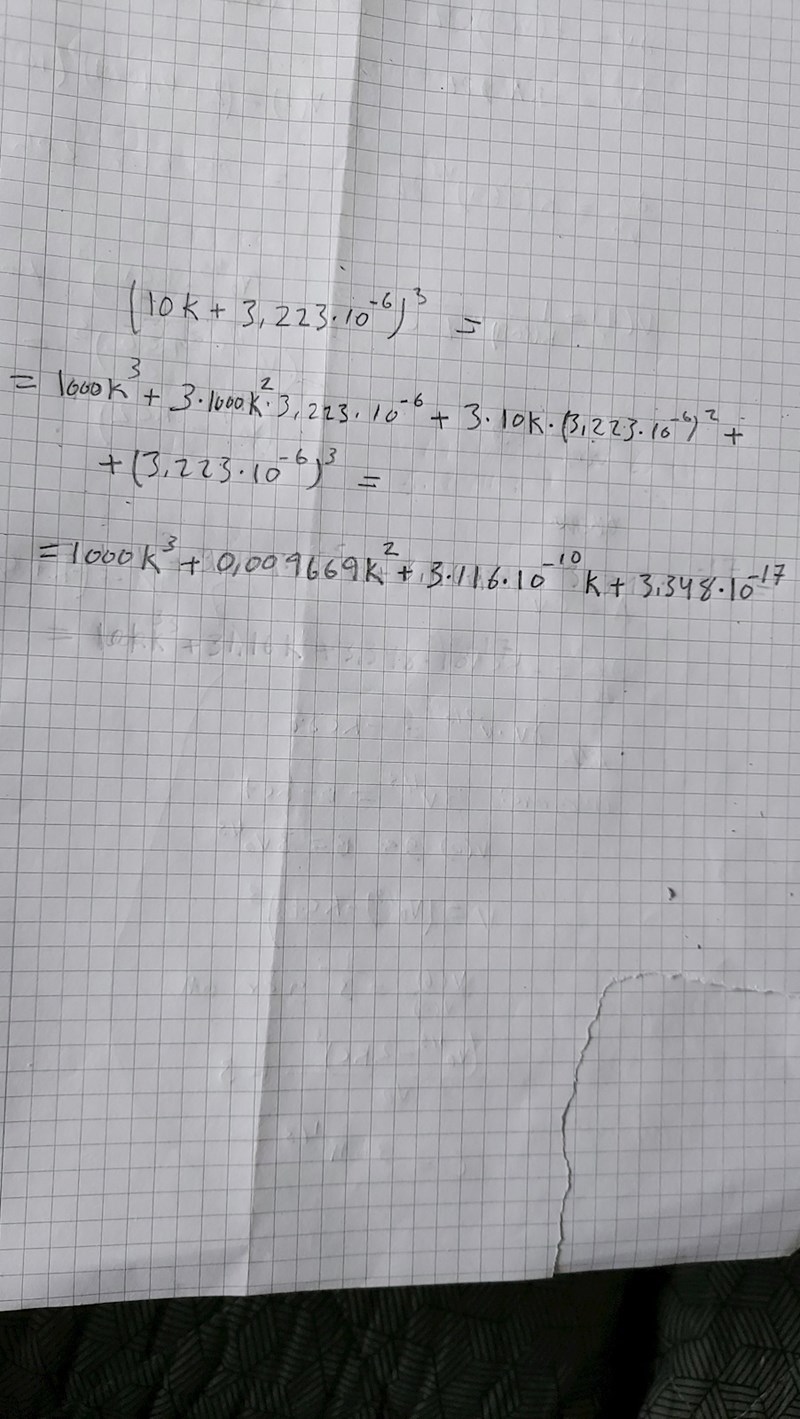 (10k + 3,223·10⁻⁶)³ =
= 1000k³ + 3·1000k²·3,223·10⁻⁶ + 3·10k·(3,223·10⁻⁶)² +
+ (3,223·10⁻⁶)³ =
= 1000k³ + 0,009669k² + 3.116·10⁻¹⁰k + 3.348·10⁻¹⁷